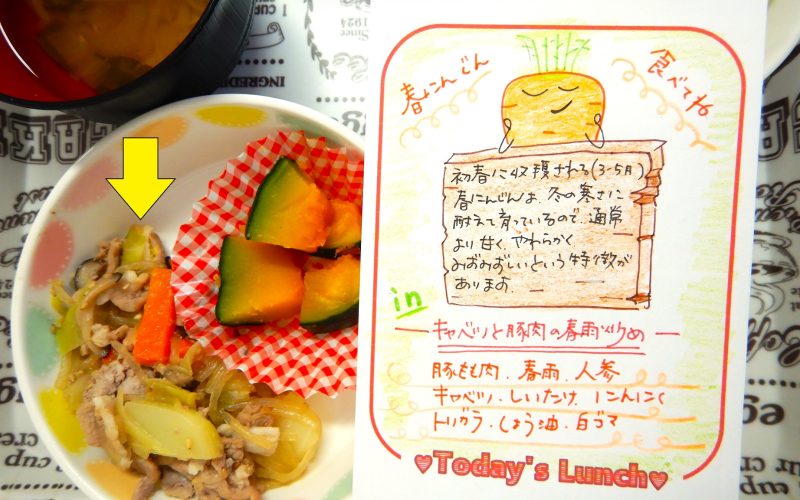 春にんじん
食べてネ
初春に収穫される(3-5月)
春にんじんは、冬の寒さに
耐えて育っているので、通常
より甘く、やわらかく
みずみずしいという特徴が
あります。
in
キャベツと豚肉の春雨炒め
豚もも肉、春雨、人参
キャベツ、しいたけ、にんにく
トリガラ、しょう油、白ゴマ
♥Today's Lunch♥
1924